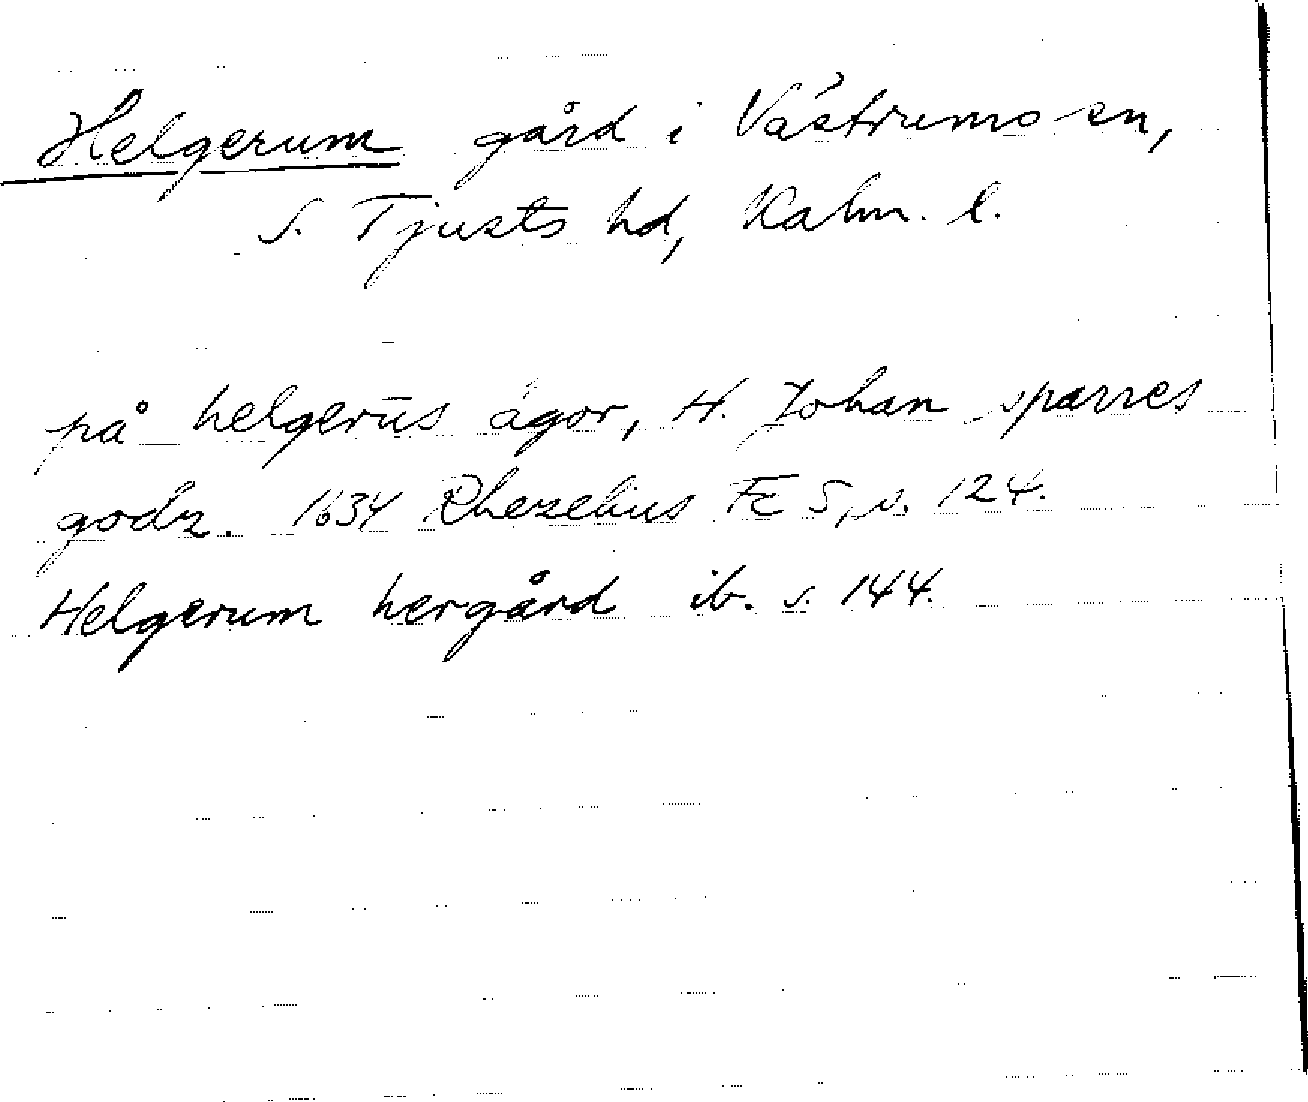 Helgerum gård i Västrums sn,
S. Tjusts hd, Kalm. l.
på helgerūs ägor, H. Johan sparres
godz. 1634 Rhezelius Fc 5, s. 124.
Helgerum hergård ib. s. 144.